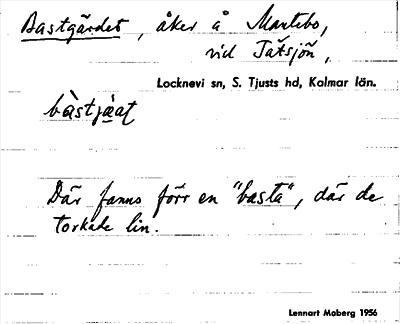 Bastgärdet, åker å Mantebo,
vid Tätsjön,
Locknevi sn, S. Tjusts hd, Kalmar län.
Där fanns förr en "basta", där de
torkade lin.
Lennart Moberg 1956